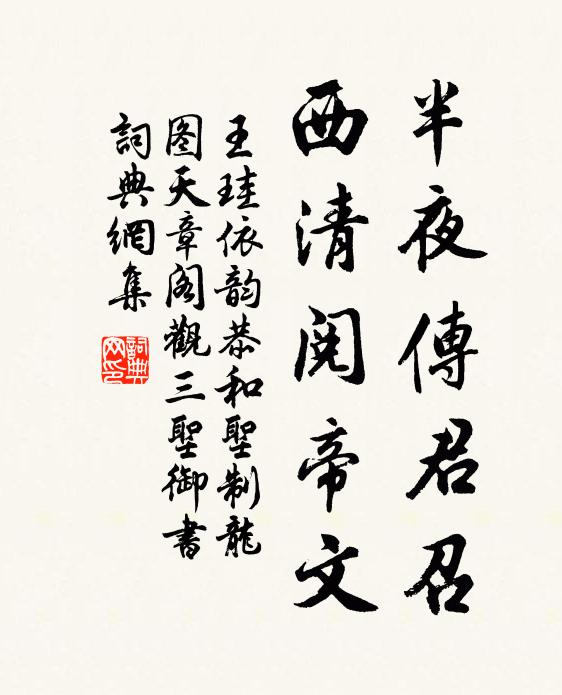 半夜傳君召
西清閱帝文
王珪依韵恭和聖制龍
图天章阁觀三聖御書
詞典網集
詞典
网印